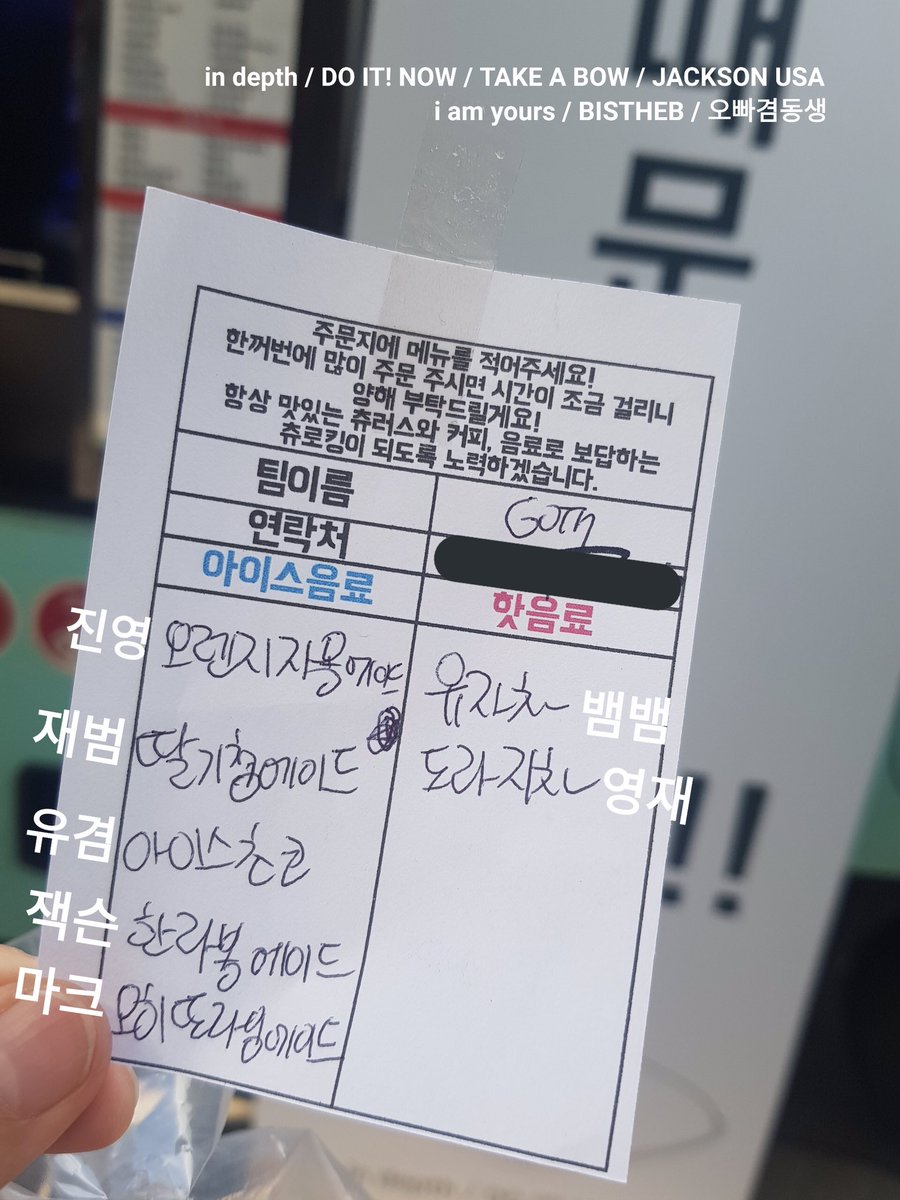 in depth / DO IT! NOW / TAKE A BOW / JACKSON USA
i am yours / BISTHEB / 오빠겸동생
때문
주문지에 메뉴를 적어주세요!
한꺼번에 많이 주문 주시면 시간이 조금 걸리니
양해 부탁드릴게요!
항상 맛있는 츄러스와 커피, 음료로 보답하는
츄로킹이 되도록 노력하겠습니다.
팀이름 GOT7
연락처
아이스음료 핫음료
진영 오렌지자몽에이드
유자차 뱀뱀
재범 딸기청에이드
도라지차 영재
유겸 아이스초코
잭슨 한라봉에이드
마크 모히또라임에이드
!!